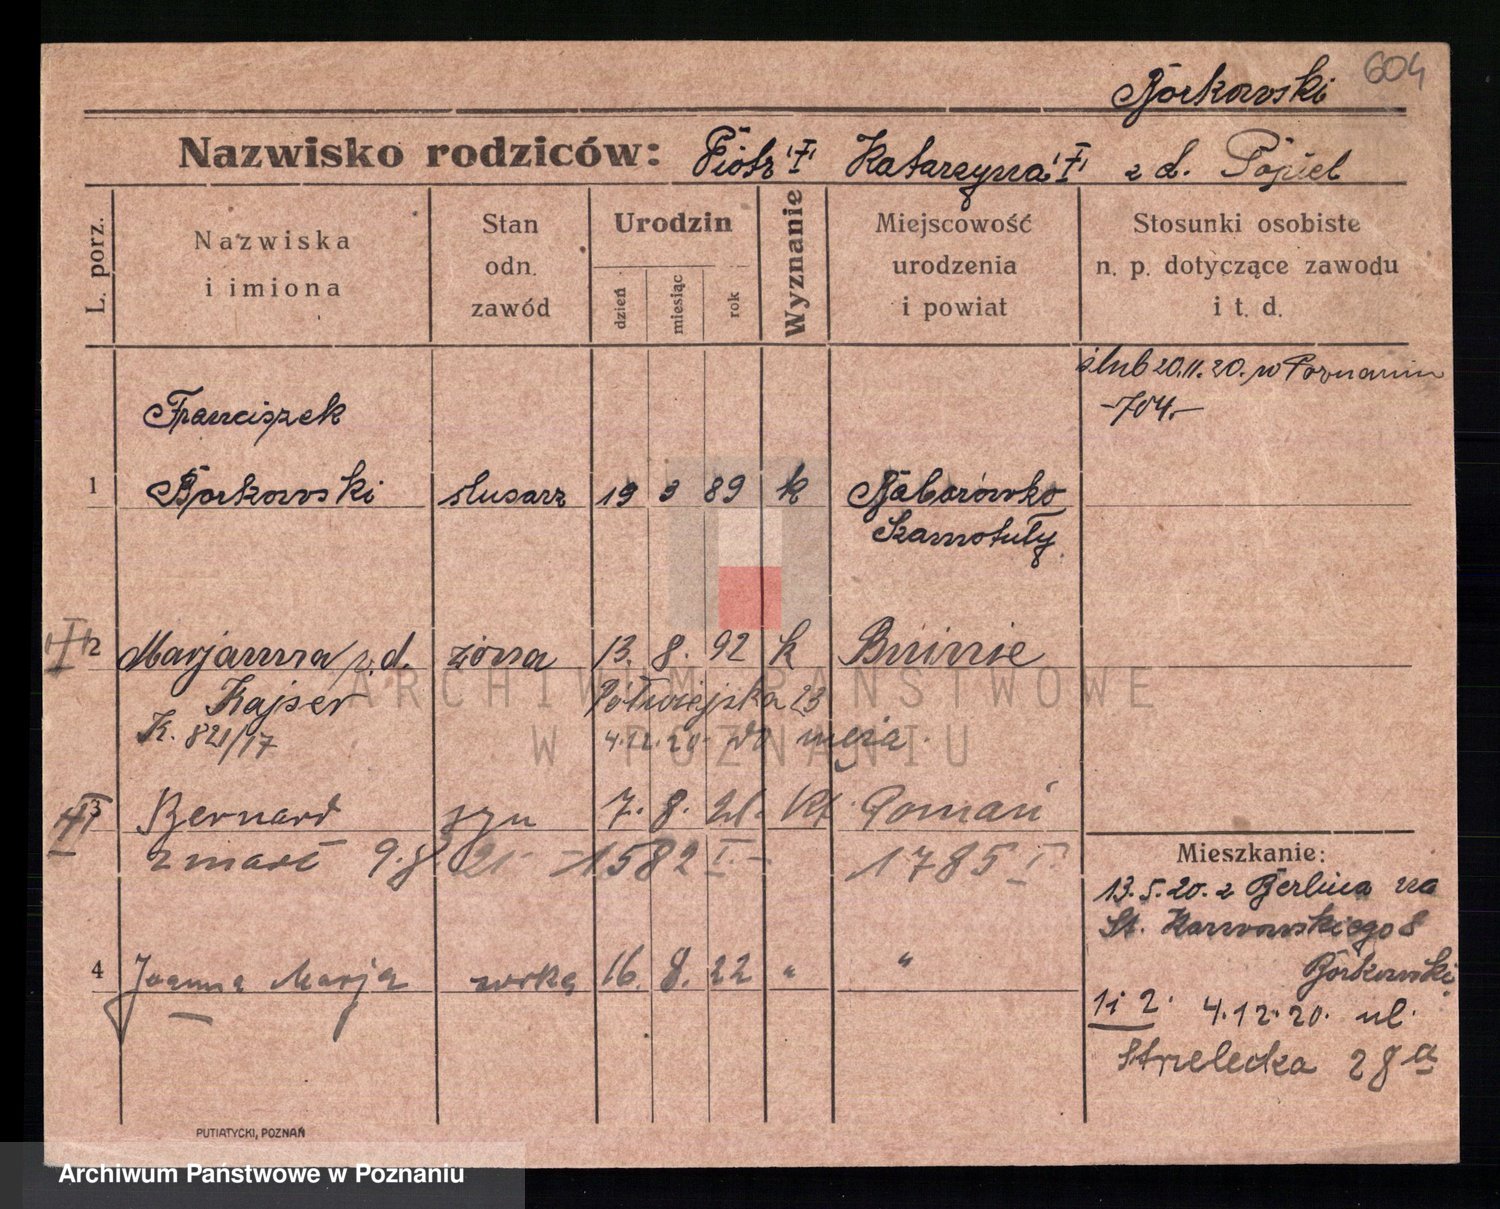 604
Borkowski
Nazwisko rodziców: Piotr Katarzyna z d. Popiel
L. porz.
Nazwiska i imiona
Stan odn. zawód
Urodzin
dzień
miesiąc
rok
Wyznanie
Miejscowość urodzenia i powiat
Stosunki osobiste n. p. dotyczące zawodu i t. d.
ślub 20.11.20. w Poznaniu
-704.-
Franciszek
1 Borkowski slusarz 19 3 89 k Baborówko
Szamotuły
2 Marjanna z. d. żona 13. 8. 92 k Bninie
Kajser Półwiejska 23
K. 821/17 4.12.20 do męża.
3 Bernard syn 7. 8. 21. kt Poznań
zmarł 9.8 21 - 1582 I. - 1785 I.
4 Joanna Marja córka 16. 8. 22 " "
Mieszkanie:
13.5.20. z Berlina na
St. Karwowskiego 8
Borkowski
1 i 2. 4.12.20. ul.
Strzelecka 28a
PUTIATYCKI, POZNAŃ
ARCHIWUM PAŃSTWOWE
W POZNANIU
Archiwum Państwowe w Poznaniu